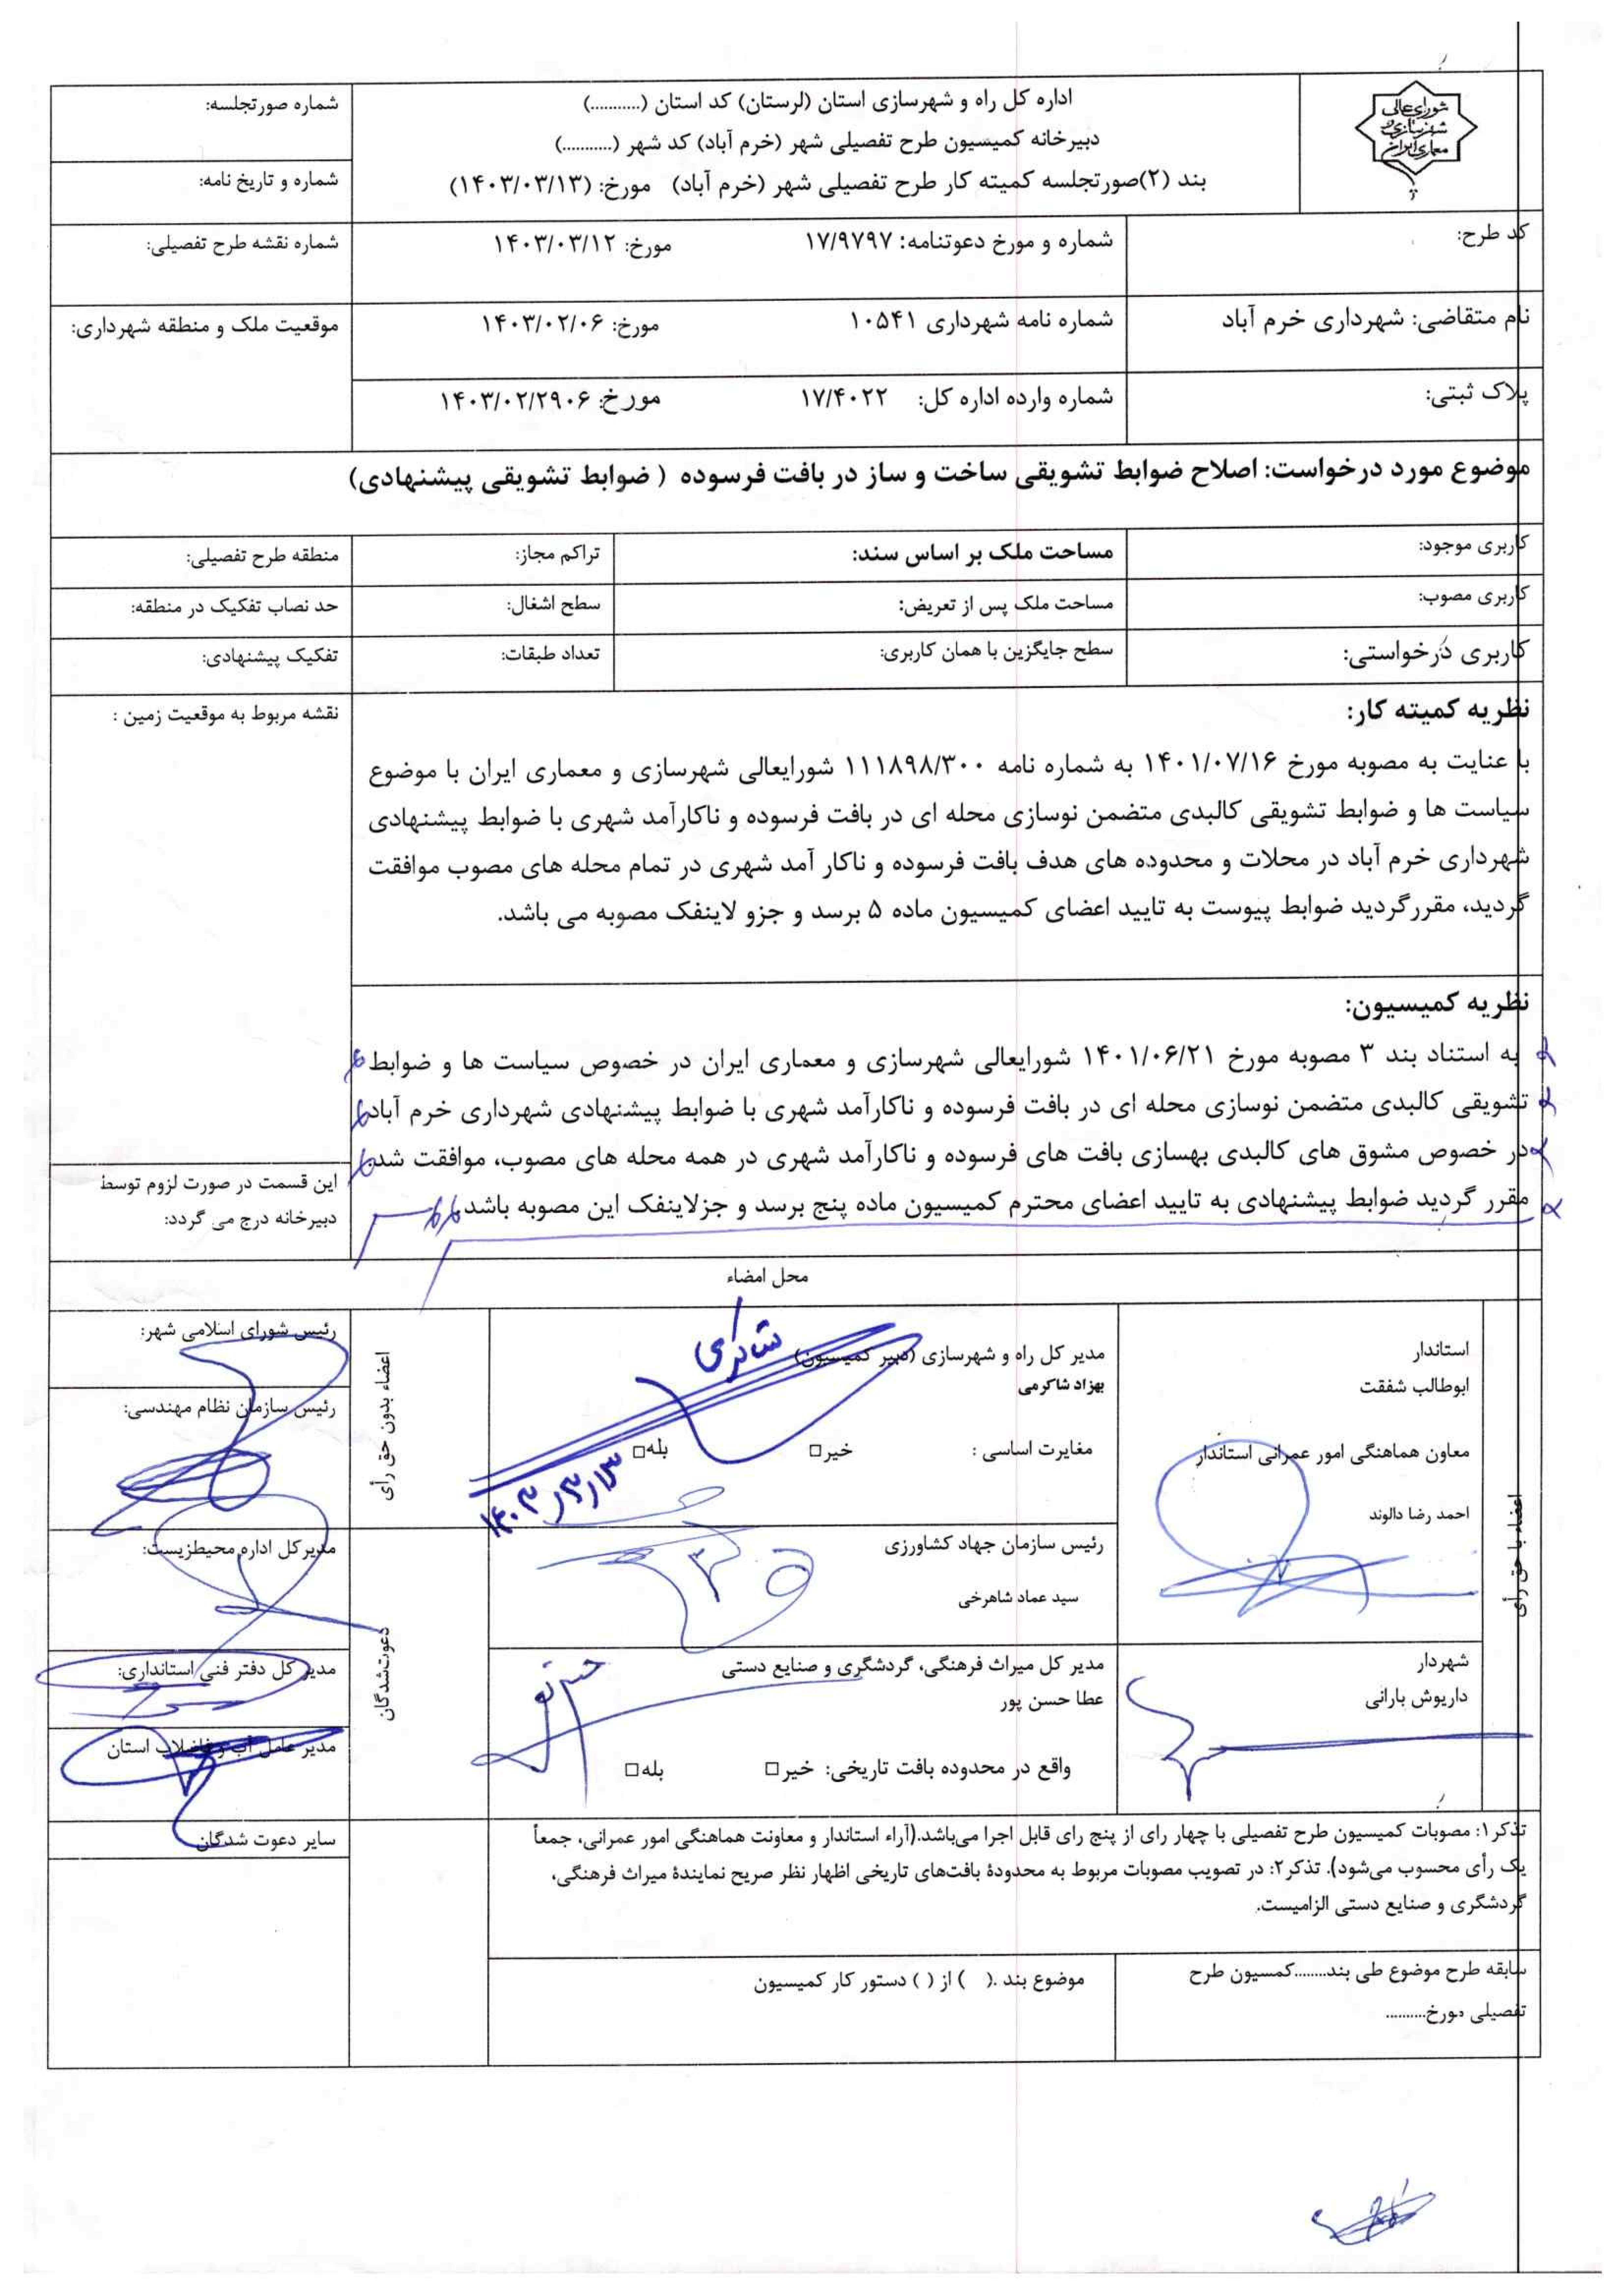 شورای‌عالی
شهرسازی و
معماری ایران
اداره کل راه و شهرسازی استان (لرستان) کد استان (..........)
دبیرخانه کمیسیون طرح تفصیلی شهر (خرم آباد) کد شهر (...........)
بند (۲)صورتجلسه کمیته کار طرح تفصیلی شهر (خرم آباد) مورخ: (۱۴۰۳/۰۳/۱۳)
شماره صورتجلسه:
شماره و تاریخ نامه:
کد طرح:
شماره و مورخ دعوتنامه: ۱۷/۹۷۹۷ مورخ: ۱۴۰۳/۰۳/۱۲
شماره نقشه طرح تفصیلی:
نام متقاضی: شهرداری خرم آباد
شماره نامه شهرداری ۱۰۵۴۱ مورخ: ۱۴۰۳/۰۲/۰۶
موقعیت ملک و منطقه شهرداری:
پلاک ثبتی:
شماره وارده اداره کل: ۱۷/۴۰۲۲ مورخ: ۱۴۰۳/۰۲/۲۹۰۶
موضوع مورد درخواست: اصلاح ضوابط تشویقی ساخت و ساز در بافت فرسوده ( ضوابط تشویقی پیشنهادی)
کاربری موجود:
مساحت ملک بر اساس سند:
تراکم مجاز:
منطقه طرح تفصیلی:
کاربری مصوب:
مساحت ملک پس از تعریض:
سطح اشغال:
حد نصاب تفکیک در منطقه:
کاربری درخواستی:
سطح جایگزین با همان کاربری:
تعداد طبقات:
تفکیک پیشنهادی:
نظریه کمیته کار:
با عنایت به مصوبه مورخ ۱۴۰۱/۰۷/۱۶ به شماره نامه ۱۱۱۸۹۸/۳۰۰ شورایعالی شهرسازی و معماری ایران با موضوع
سیاست ها و ضوابط تشویقی کالبدی متضمن نوسازی محله ای در بافت فرسوده و ناکارآمد شهری با ضوابط پیشنهادی
شهرداری خرم آباد در محلات و محدوده های هدف بافت فرسوده و ناکار آمد شهری در تمام محله های مصوب موافقت
گردید، مقررگردید ضوابط پیوست به تایید اعضای کمیسیون ماده ۵ برسد و جزو لاینفک مصوبه می باشد.
نقشه مربوط به موقعیت زمین :
نظریه کمیسیون:
به استناد بند ۳ مصوبه مورخ ۱۴۰۱/۰۶/۲۱ شورایعالی شهرسازی و معماری ایران در خصوص سیاست ها و ضوابط
تشویقی کالبدی متضمن نوسازی محله ای در بافت فرسوده و ناکارآمد شهری با ضوابط پیشنهادی شهرداری خرم آباد
در خصوص مشوق های کالبدی بهسازی بافت های فرسوده و ناکارآمد شهری در همه محله های مصوب، موافقت شد.
مقرر گردید ضوابط پیشنهادی به تایید اعضای محترم کمیسیون ماده پنج برسد و جزلاینفک این مصوبه باشد.
این قسمت در صورت لزوم توسط
دبیرخانه درج می گردد:
محل امضاء
اعضاء با حق رأی
استاندار
ابوطالب شفقت
معاون هماهنگی امور عمرانی استاندار
احمد رضا دالوند
مدیر کل راه و شهرسازی (دبیر کمیسیون)
بهزاد شاکرمی
مغایرت اساسی : خیر□ بله□
شاکرمی
۱۴۰۳/۳/۱۳
رئیس سازمان جهاد کشاورزی
سید عماد شاهرخی
شهردار
داریوش بارانی
مدیر کل میراث فرهنگی، گردشگری و صنایع دستی
عطا حسن پور
واقع در محدوده بافت تاریخی: خیر□ بله□
اعضاء بدون حق رأی
رئیس شورای اسلامی شهر:
رئیس سازمان نظام مهندسی:
دعوت‌شدگان
مدیرکل اداره محیط‌زیست:
مدیر کل دفتر فنی استانداری:
مدیر عامل آب و فاضلاب استان
سایر دعوت شدگان
تذکر۱: مصوبات کمیسیون طرح تفصیلی با چهار رای از پنج رای قابل اجرا می‌باشد.(آراء استاندار و معاونت هماهنگی امور عمرانی، جمعاً
یک رأی محسوب می‌شود). تذکر۲: در تصویب مصوبات مربوط به محدودهٔ بافت‌های تاریخی اظهار نظر صریح نمایندهٔ میراث فرهنگی،
گردشگری و صنایع دستی الزامیست.
سابقه طرح موضوع طی بند........کمسیون طرح
تفصیلی مورخ..........
موضوع بند .( ) از ( ) دستور کار کمیسیون